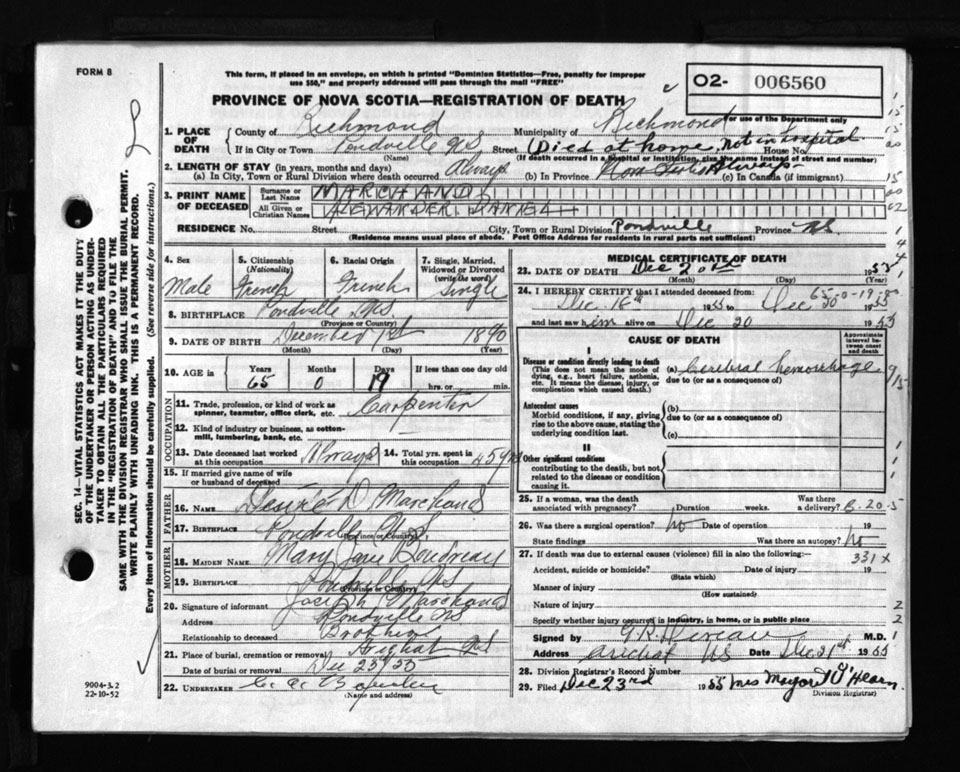 FORM 8
This form, if placed in an envelope, on which is printed "Dominion Statistics—Free, penalty for improper
use $50," and properly addressed will pass through the mail "FREE"
O2- 006560
For use of the Department only
PROVINCE OF NOVA SCOTIA—REGISTRATION OF DEATH
1. PLACE OF DEATH
County of Richmond Municipality of Richmond
If in City or Town Pondville NS Street (Died at home, not in hospital House No.
(Name) (If death occurred in a hospital or institution, give the name instead of street and number)
2. LENGTH OF STAY (in years, months and days)
(a) In City, Town or Rural Division where death occurred Always (b) In Province Nova Scotia Always (c) In Canada (if immigrant)
3. PRINT NAME OF DECEASED
Surname or Last Name MARCHAND
All Given or Christian Names ALEXANDER DANIEL
RESIDENCE No. Street City, Town or Rural Division Pondville Province NS
(Residence means usual place of abode. Post Office Address for residents in rural parts not sufficient)
4. Sex Male
5. Citizenship (Nationality) French
6. Racial Origin French
7. Single, Married, Widowed or Divorced (write the word) Single
8. BIRTHPLACE Pondville NS
(Province or Country)
9. DATE OF BIRTH December 1st 1890
(Month) (Day) (Year)
10. AGE in Years 65 Months 0 Days 19 If less than one day
hrs. or min.
OCCUPATION
11. Trade, profession, or kind of work as spinner, teamster, office clerk, etc. Carpenter
12. Kind of industry or business, as cotton-mill, lumbering, bank, etc.
13. Date deceased last worked at this occupation Always
14. Total yrs. spent in this occupation 45 yrs
15. If married give name of wife or husband of deceased
FATHER
16. NAME Desiré D Marchand
17. BIRTHPLACE Pondville NS
(Province or country)
MOTHER
18. MAIDEN NAME Mary Jane Boudreau
19. BIRTHPLACE Pondville NS
(Province or Country)
20. Signature of informant Joseph Marchand
Address Pondville NS
Relationship to deceased Brother
21. Place of burial, cremation or removal Arichat NS
Date of burial or removal Dec 23
22. UNDERTAKER
(Name and address)
MEDICAL CERTIFICATE OF DEATH
23. DATE OF DEATH Dec 20th 1955
(Month) (Day)
24. I HEREBY CERTIFY that I attended deceased from:
65-0-19
Dec 16th 1955 to Dec 20 1955
and last saw him alive on Dec 20 1955
CAUSE OF DEATH
Approximate interval between onset and death
I
Disease or condition directly leading to death
(This does not mean the mode of dying, e.g., heart failure, asthenia, etc. It means the disease, injury, or complication which caused death.)
(a) Cerebral hemorrhage
due to (or as a consequence of)
Antecedent causes
Morbid conditions, if any, giving rise to the above cause, stating the underlying condition last.
(b)
due to (or as a consequence of)
(c)
II
Other significant conditions
contributing to the death, but not related to the disease or condition causing it.
25. If a woman, was the death associated with pregnancy? Duration weeks. Was there a delivery? B-20-5
26. Was there a surgical operation? No Date of operation 19
State findings Was there an autopsy? No
27. If death was due to external causes (violence) fill in also the following:— 331x
Accident, suicide or homicide? Date of injury 19
(State which)
Manner of injury
(How sustained)
Nature of injury
Specify whether injury occurred in industry, in home, or in public place
Signed by M.D.
Address Arichat NS Date Dec 21st 1955
28. Division Registrar's Record Number
29. Filed Dec 23rd 1955 Mrs O'Hearn
Division Registrar
9004-3.2
22-10-52
SEC. 14—VITAL STATISTICS ACT MAKES IT THE DUTY
OF THE UNDERTAKER OR PERSON ACTING AS UNDER-
TAKER TO OBTAIN ALL THE PARTICULARS REQUIRED
IN THE "REGISTRATION OF DEATH" AND TO FILE THE
SAME WITH THE DIVISION REGISTRAR WHO SHALL ISSUE THE BURIAL PERMIT.
WRITE PLAINLY WITH UNFADING INK. THIS IS A PERMANENT RECORD.
Every item of information should be carefully supplied. (See reverse side for instructions.)